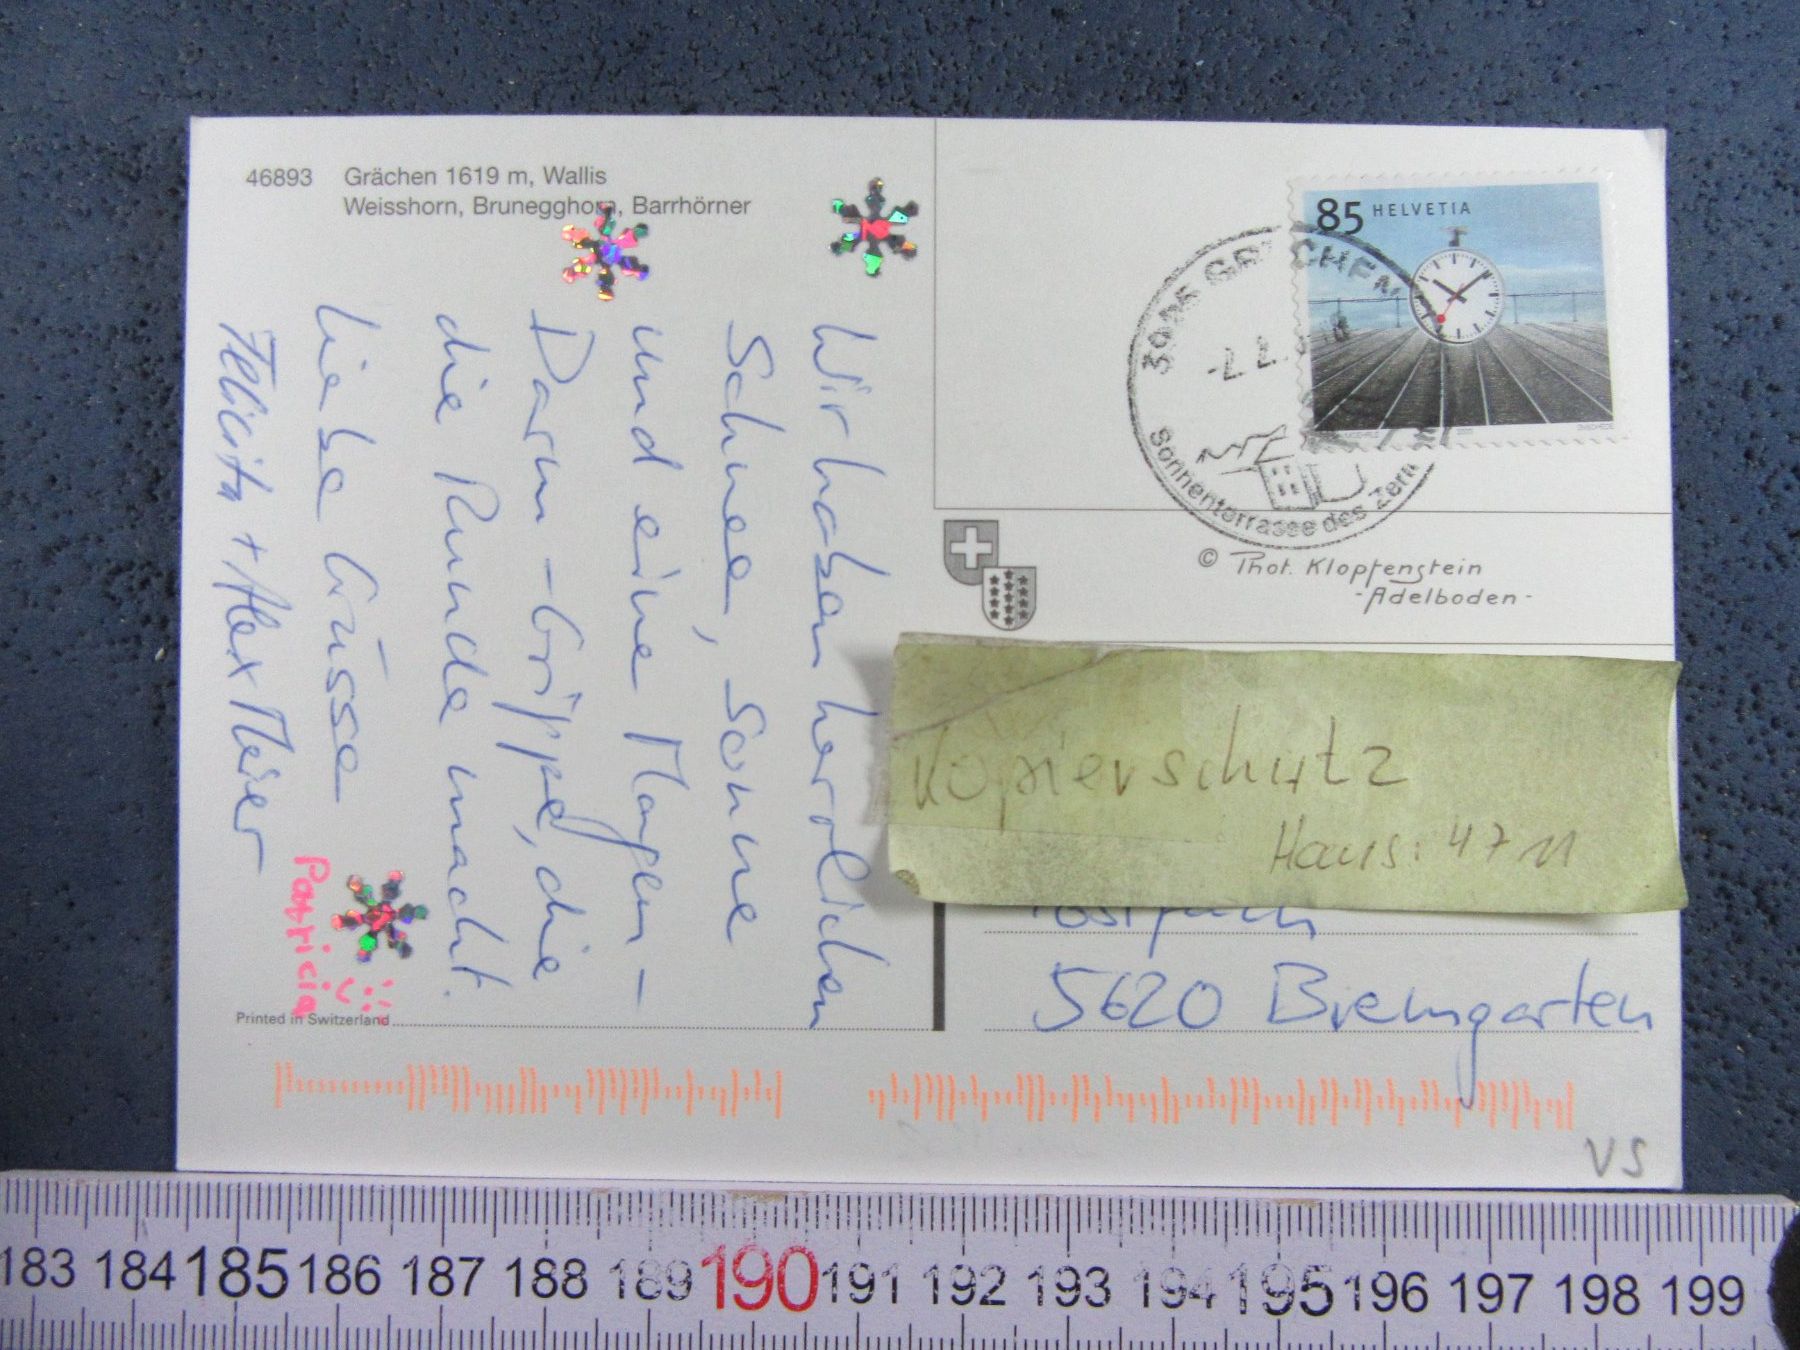 46893 Grächen 1619 m, Wallis
Weisshorn, Brunegghorn, Barrhörner
Wir haben herrlichen
Schnee, Sonne
und eine Magen-
Darm-Grippe, die
die Runde macht.
Liebe Grüsse
Felicita + Alex Meier
Patricia
Printed in Switzerland
85 HELVETIA
GRÄCHEN
Sonnenterrasse des Zerm
© Phot. Klopfenstein
-Adelboden-
Kopierschutz
Haus: 4711
Postfach
5620 Bremgarten
VS
183 184 185 186 187 188 189 190 191 192 193 194 195 196 197 198 199